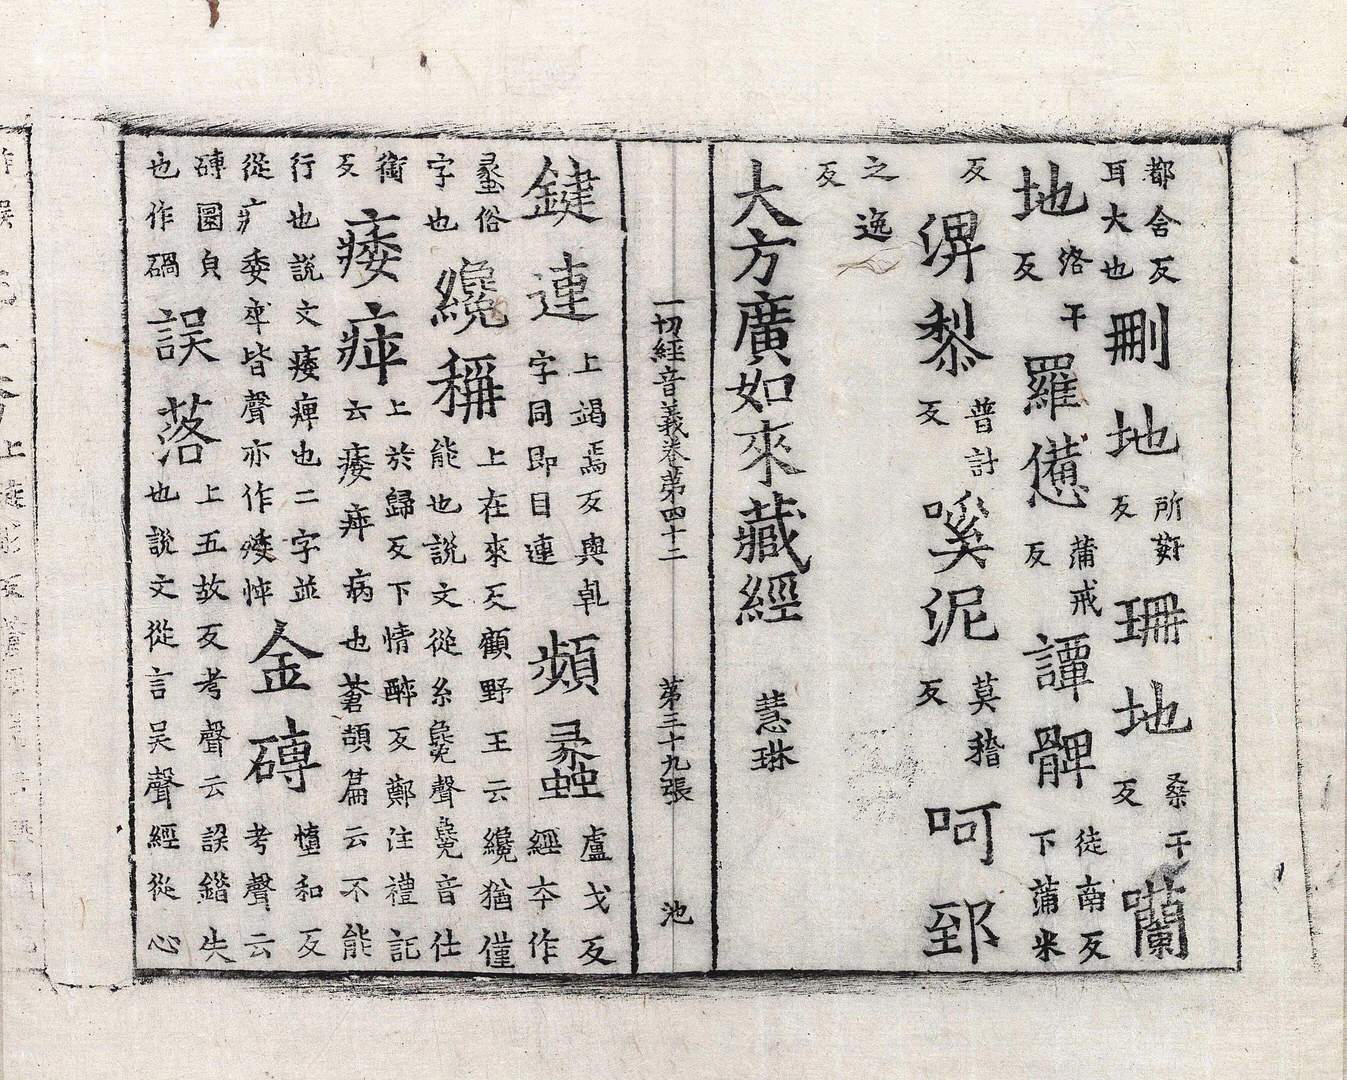 都舍反
耳大也
刪地
所姧
反
珊地
桑干
反
囒
地
洛干
反
羅憊
蒲戒
反
譚髀
徒南反
下蒲米
反
渒黎
普計
反
嗘泥
莫𥡴
反
呵郅
之逸
反
大方廣如來藏經 慧琳
一切經音義卷第四十二 第三十九張 池
鍵連
上竭焉反與乹
字同即目連
頻蠡
盧戈反
經夲作
蝨俗
字也
纔稱
上在來反顧野王云纔猶僅
能也說文從糸毚聲毚音仕
銜
反
痿瘁
上於歸反下情醉反鄭注禮記
云痿瘁病也蒼頡篇云不能
行也說文痿痺也二字並
從疒委卒皆聲亦作㾯悴
金磚
慱和反
考聲云
磚圓㒵
也作碢
誤落
上五故反考聲云誤錯失
也說文從言吳聲經從心